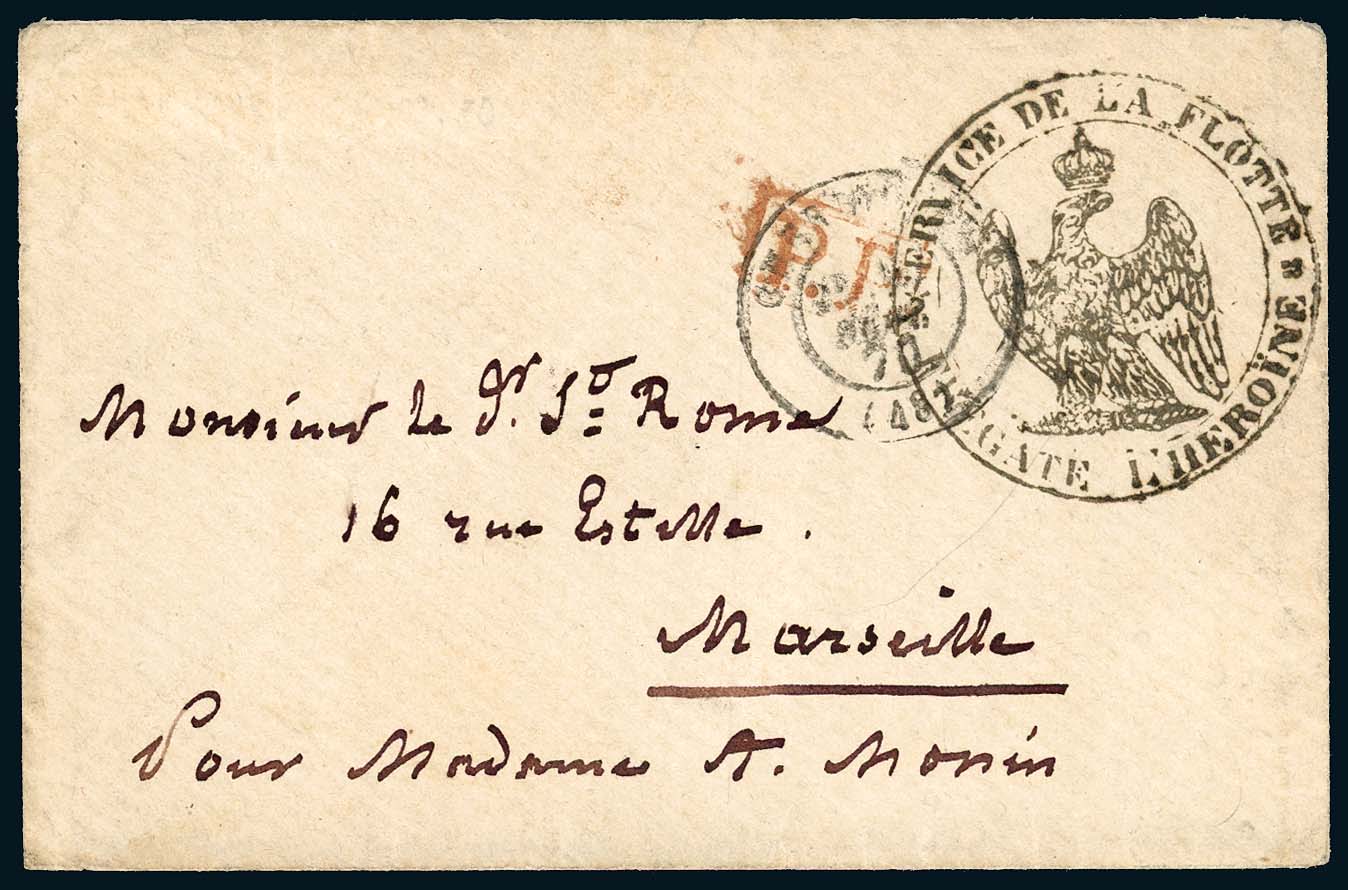 SERVICE DE LA FLOTTE
FRÉGATE L'HEROÏNE
P.P.
(48)
Monsieur le Dr. St Rome
16 rue Estelle.
Marseille
Pour Madame A. Monin